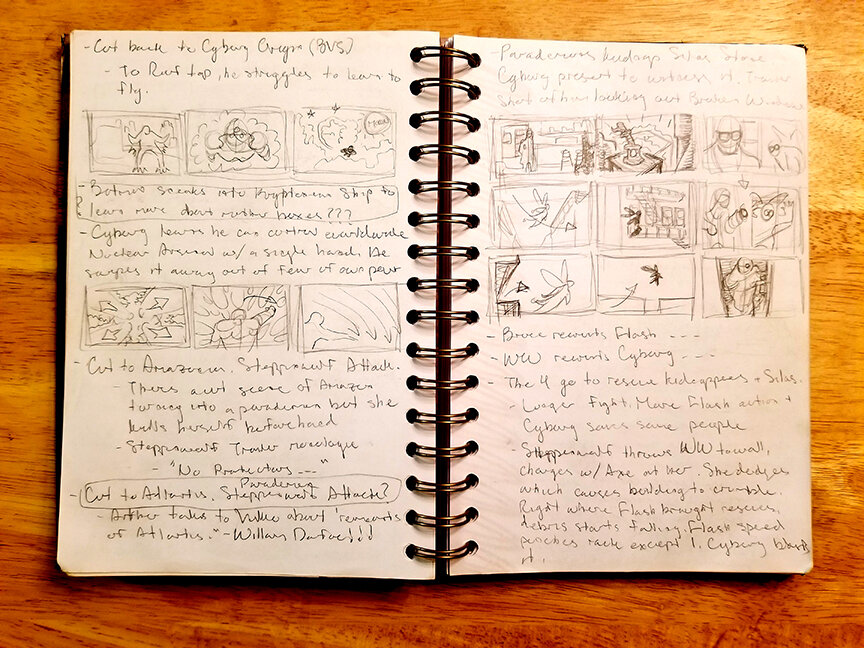 - Cut back to Cyborg Origin (BVS)
- To Roof top, he struggles to learn to
fly.
- Batman sneaks into Kryptonian Ship to
learn more about mother boxes???
- Cyborg learns he can control worldwide
Nuclear Arsenal w/ a single hand. He
swipes it away out of fear of own power
- Cut to Amazonians. Steppenwolf Attack.
- There's a cut scene of Amazon
turning into a parademon but she
kills herself beforehand
- Steppenwolf Trailer monologue
- "No Protectors ---"
Parademon
- Cut to Atlantis. Steppenwolf Attack?
- Arthur talks to Vulko about 'remnants
of Atlantis." - Willam Dafoe!!!
- Parademons kidnap Silas Stone
Cyborg present to witness it. Trailer
Shot of him looking out Broken Window
- Bruce recruits Flash ---
- WW recruits Cyborg ---
- The 4 go to rescue kidnappees + Silas.
- Longer fight. More Flash action +
Cyborg saves some people
- Steppenwolf throws WW to wall,
charges w/ Axe at her. She dodges
which causes building to crumble.
Right where Flash brought rescues,
debris starts falling. Flash speed
punches each except 1. Cyborg blasts
it.